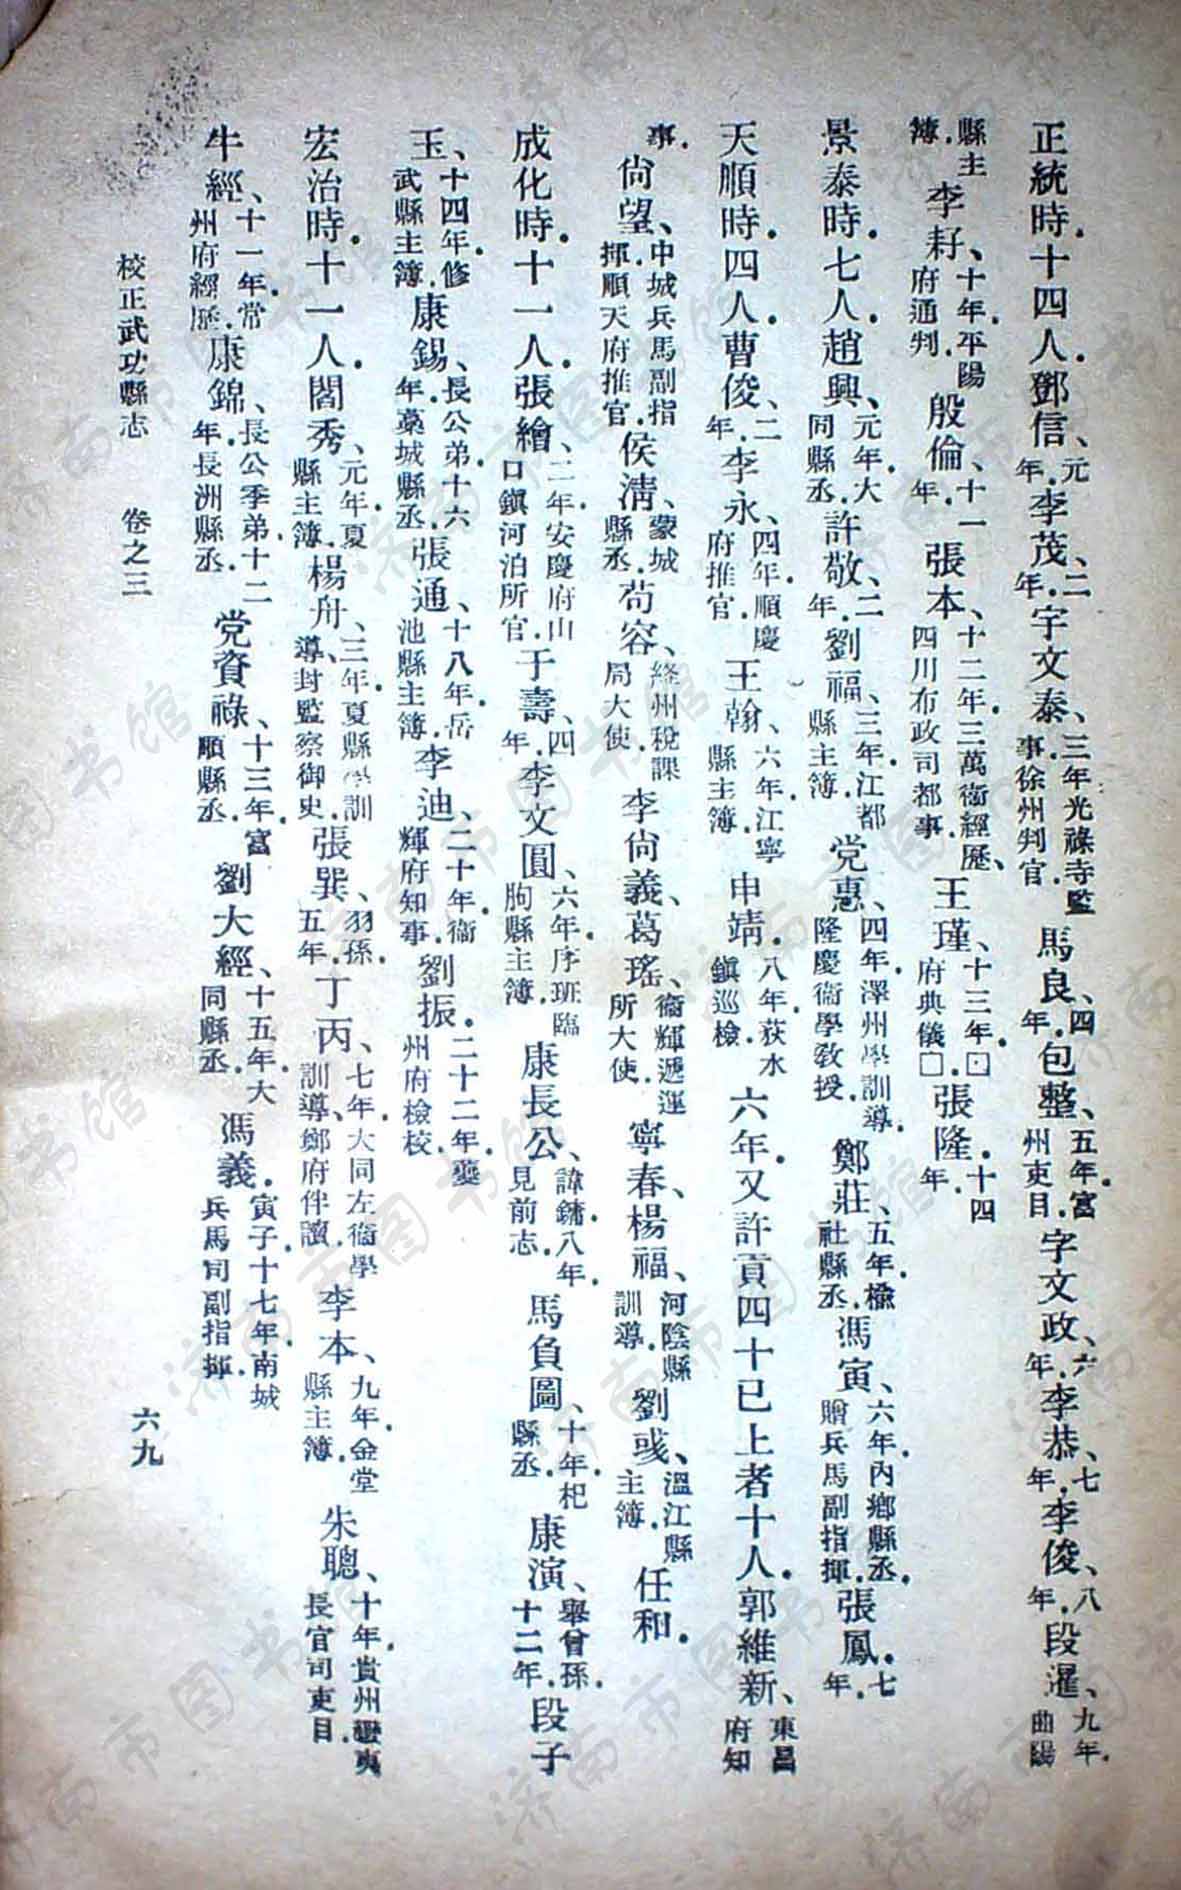 正統時十四人鄧信、元年李茂、二年宇文泰、三年光祿寺監事徐州判官馬良、四年包整、五年富州吏目宇文政、六年李恭、七年李俊、八年段暹、九年曲陽
縣主簿李耔、十年平陽府通判殷倫、十一年張本、十二年三萬衞經歷、四川布政司都事王瑾、十三年□府典儀□張隆、十四年
景泰時七人趙興、元年大同縣丞許敬、二年劉福、三年江都縣主簿党惠、四年澤州學訓導隆慶衞學教授鄭莊、五年楡社縣丞馮寅、六年內鄉縣丞贈兵馬副指揮張鳳、七年
天順時四人曹俊、二年李永、四年順慶府推官王翰、六年江寧縣主簿申靖、八年荻水鎭巡檢六年又許貢四十已上者十人郭維新、東昌府知
事尙望、中城兵馬副指揮順天府推官侯淸、蒙城縣丞苟容、絳州稅課局大使李尙義葛瑤、衞輝遞運所大使寧春楊福、河陰縣訓導劉彧、溫江縣主簿任和
成化時十一人張繪、二年安慶府山口鎭河泊所官于壽、四年李文圓、六年序班臨朐縣主簿康長公、諱鏞八年見前志馬負圖、十年杞縣丞康演、舉曾孫十二年段子
玉、十四年修武縣主簿康錫、長公弟十六年藁城縣丞張通、十八年岳池縣主簿李迪、二十年衞輝府知事劉振、二十二年夔州府檢校
宏治時十一人閻秀、元年夏縣主簿楊舟、三年夏縣學訓導、封監察御史張巽、羽孫五年丁丙、七年大同左衞學訓導、鄭府伴讀李本、九年金堂縣主簿朱聰、十年貴州蠻夷長官司吏目
牛經、十一年常州府經歷康錦、長公季弟十二年長洲縣丞党資祿、十三年富順縣丞劉大經、十五年大同縣丞馮義、寅子十七年南城兵馬司副指揮
校正武功縣志　卷之三　六九
济南市图书馆